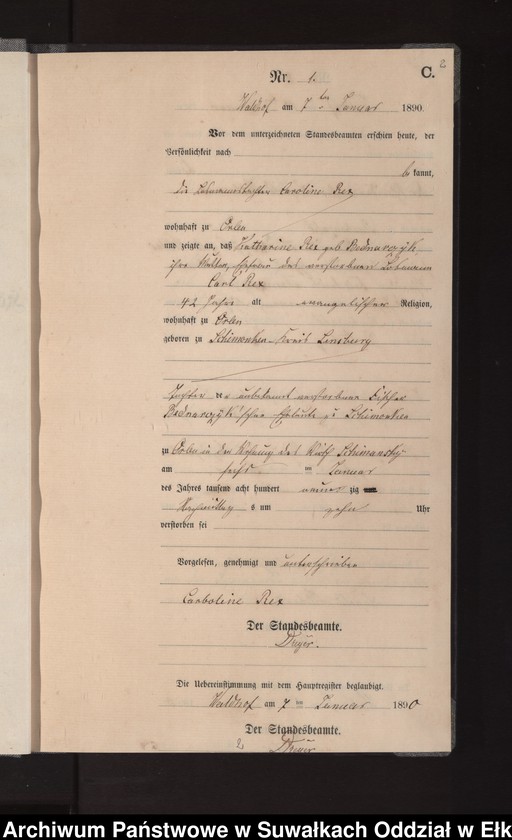 2
Nr. 1. C.
Waldhof am 7ten Januar 1890.
Vor dem unterzeichneten Standesbeamten erschien heute, der
Persönlichkeit nach
bekannt,
die Caroline Rex
wohnhaft zu Orlen
und zeigte an, daß Katharine Rex geb. Bednarczyk
ihre Mutter, Ehefrau des verstorbenen
Carl Rex
42 Jahre alt evangelischer Religion,
wohnhaft zu Orlen
geboren zu Schimonken Kreis Sensburg
Tochter der unbekannt verstorbenen Fischer
Bednarczyk'schen Eheleute zu Schimonken
zu Orlen in der Wohnung des Wirth Schimansky
am sechsten Januar
des Jahres tausend acht hundert neunzig
Nachmittags um zehn Uhr
verstorben sei
Vorgelesen, genehmigt und unterschrieben
Caroline Rex
Der Standesbeamte.
Die Uebereinstimmung mit dem Hauptregister beglaubigt.
Waldhof am 7ten Januar 1890
Der Standesbeamte.
Archiwum Państwowe w Suwałkach Oddział w Ełk